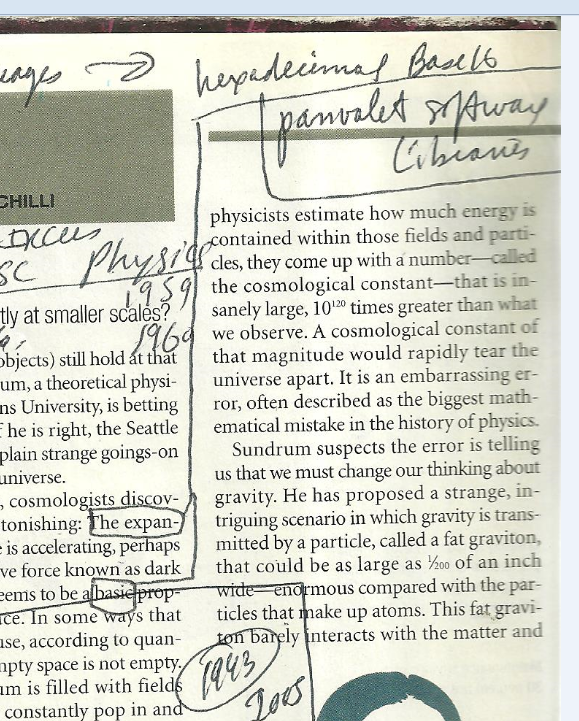 hexadecimal Base16
panvalet software
Libraries
CHILLI
Physics
1959
tly at smaller scales?
objects) still hold at that
um, a theoretical physi-
ns University, is betting
f he is right, the Seattle
plain strange goings-on
universe.
, cosmologists discov-
tonishing: The expan-
e is accelerating, perhaps
ve force known as dark
eems to be a basic prop-
ce. In some ways that
use, according to quan-
mpty space is not empty.
um is filled with fields
constantly pop in and
physicists estimate how much energy is
contained within those fields and parti-
cles, they come up with a number—called
the cosmological constant—that is in-
sanely large, 10¹²⁰ times greater than what
we observe. A cosmological constant of
that magnitude would rapidly tear the
universe apart. It is an embarrassing er-
ror, often described as the biggest math-
ematical mistake in the history of physics.
Sundrum suspects the error is telling
us that we must change our thinking about
gravity. He has proposed a strange, in-
triguing scenario in which gravity is trans-
mitted by a particle, called a fat graviton,
that could be as large as 1/200 of an inch
wide—enormous compared with the par-
ticles that make up atoms. This fat gravi-
ton barely interacts with the matter and
1943
2005